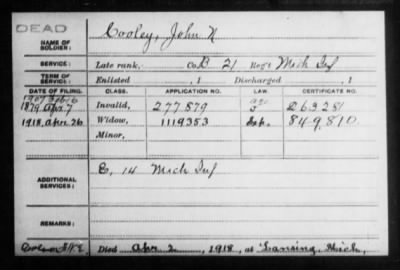 DEAD
NAME OF SOLDIER: Cooley, John N
SERVICE: Late rank, Co. B 21 Reg't Mich Inf
TERM OF SERVICE: Enlisted , 1 Discharged , 1
DATE OF FILING. CLASS. APPLICATION NO. LAW. CERTIFICATE NO.
1907
1879 Apr. 7 Invalid, 277879 263281
1918, Apr. 26 Widow, 1119353 849,810
Minor,
ADDITIONAL SERVICES: E, 14 Mich Inf
REMARKS:
Died Apr. 2, 1918, at Lansing, Mich,